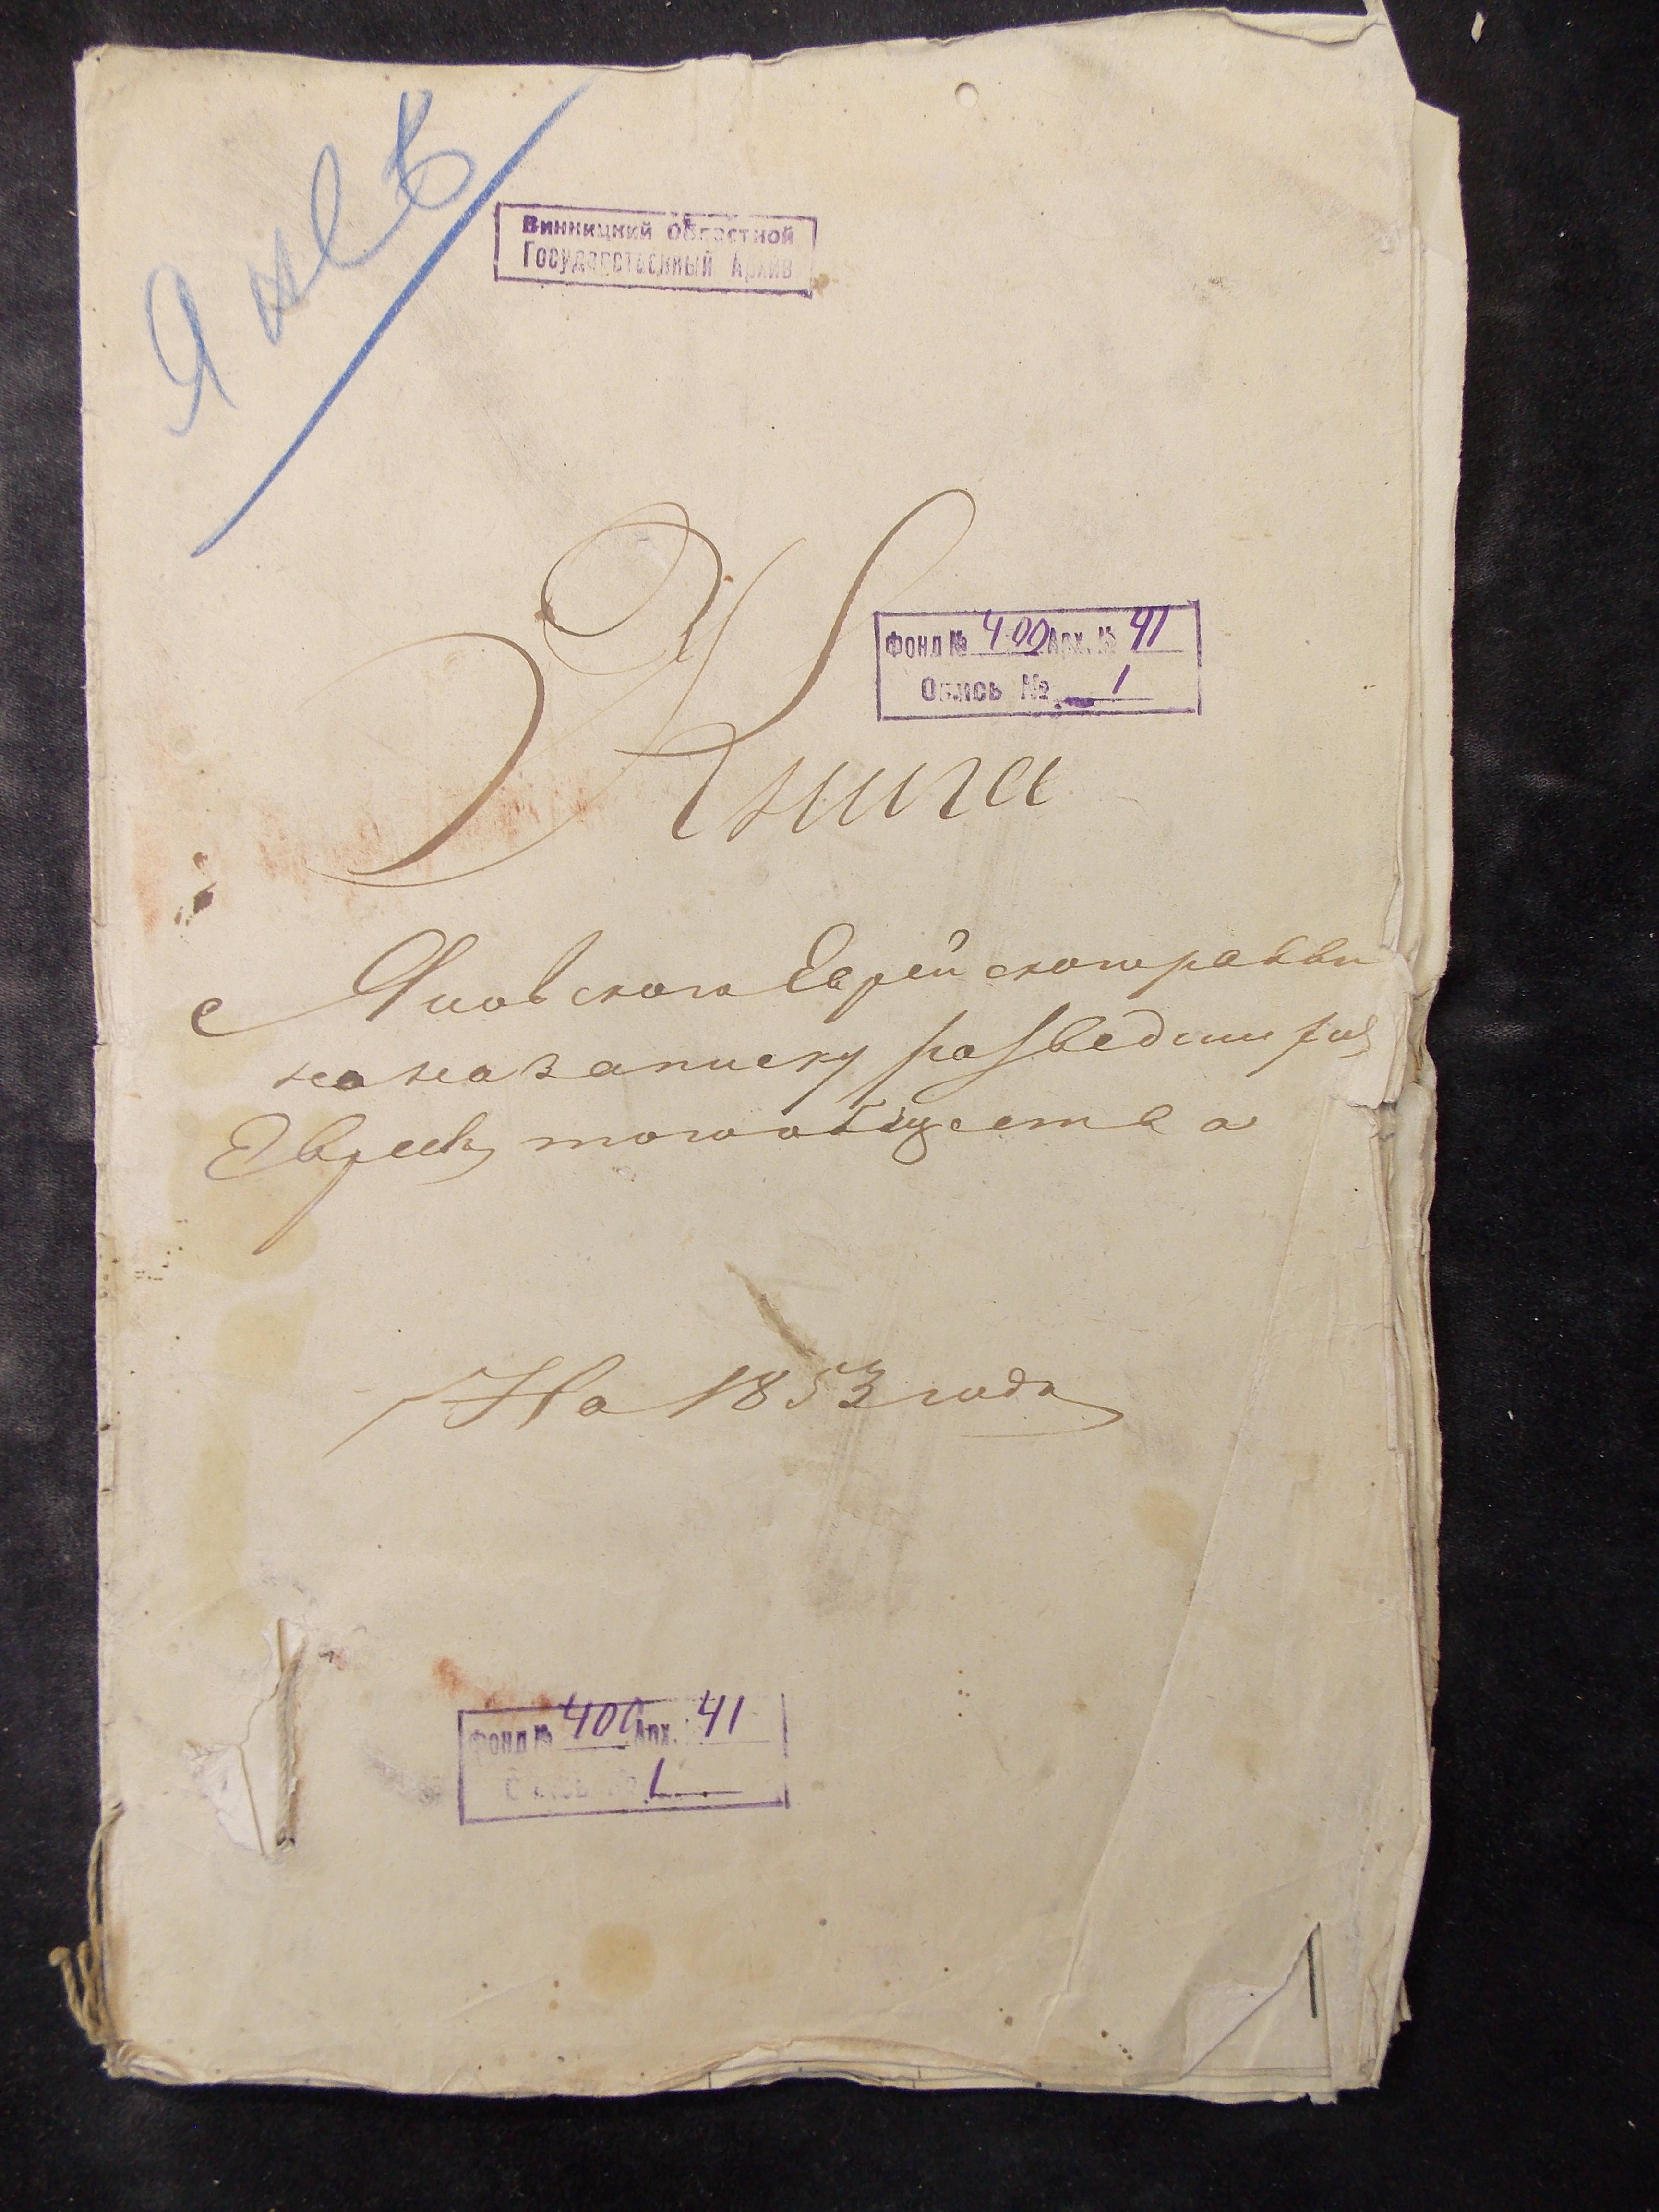 Яневъ
Винницкий Областной
Государственный Архив
Фонд № 400 Арх. № 41
Опись № 1
Книга
с Яновского Еврейскогораввы
на название записку разведшихся
Евреевъ тогообщества
На 1853 годъ
Фонд № 400 Арх. 41
Опись № 1